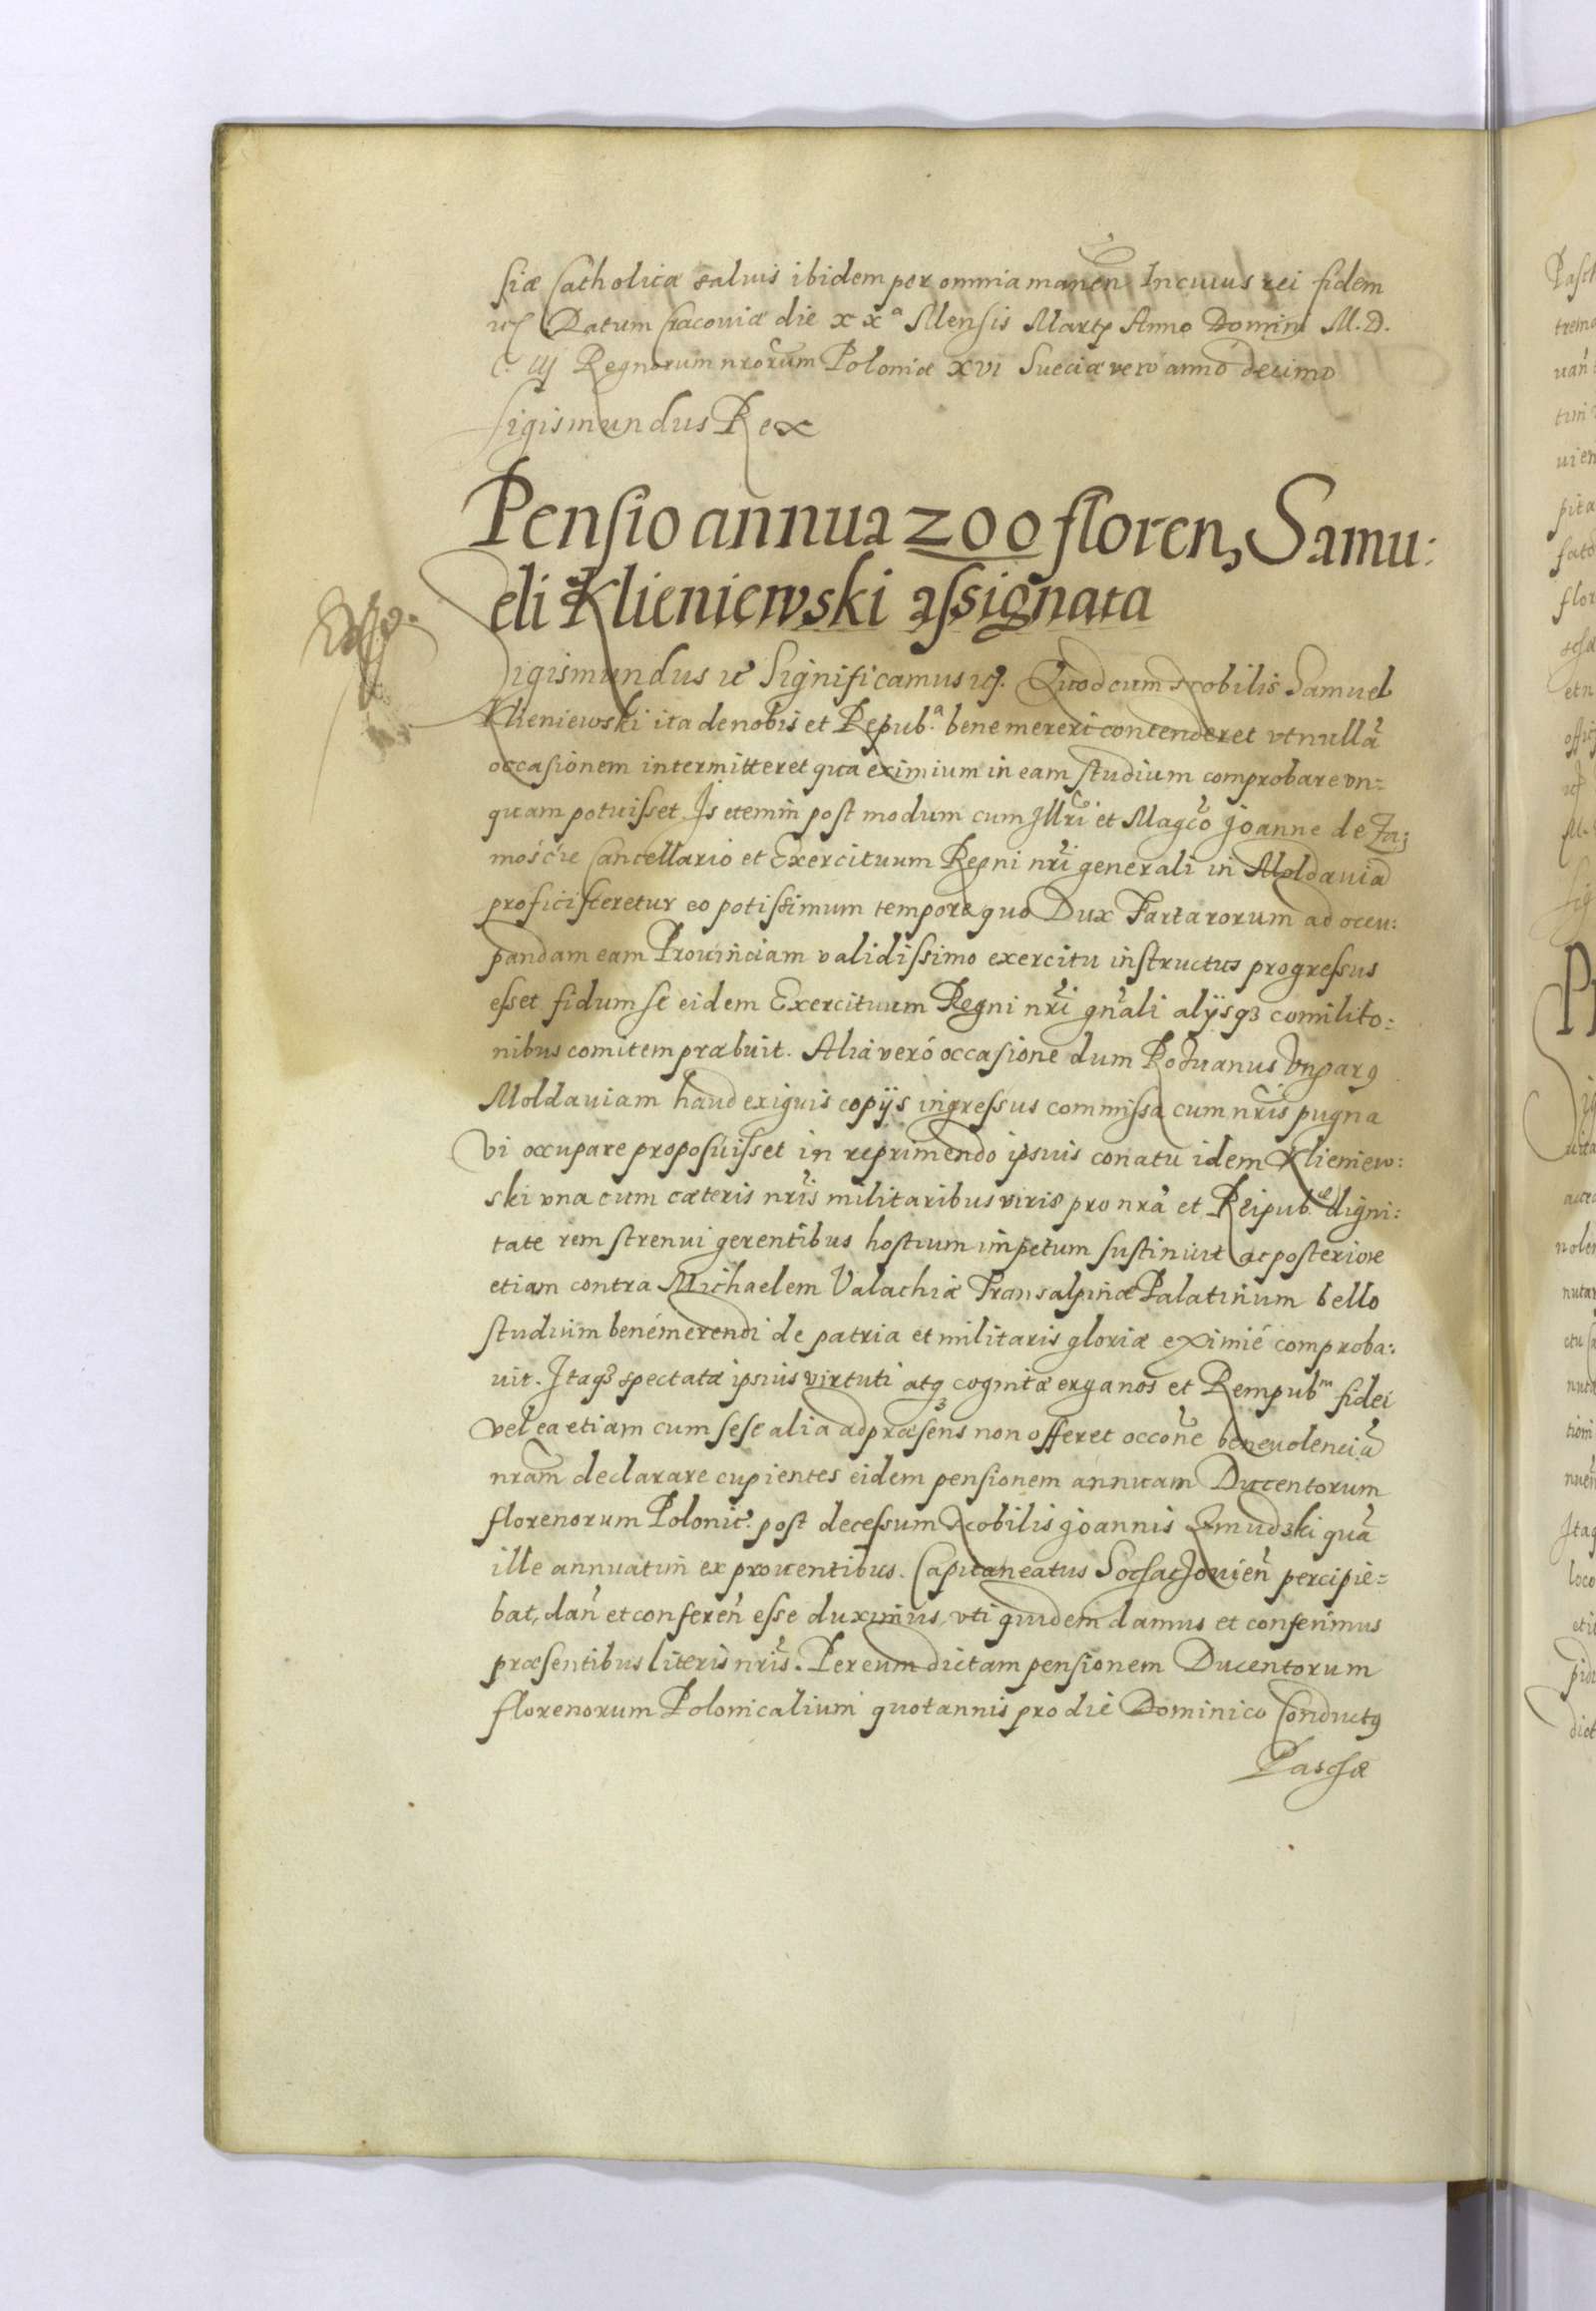 siæ Catholicæ saluis ibidem per omnia maneñ Incuius rei fidem
Datum Cracoviæ die xxª Mensis Martij Anno Domini M.D.
C. iij Regnorum nrorum Poloniæ XVI Sueciæ vero anno decimo
Sigismundus Rex
Pensio annua 200 floren, Samu:
eli Klieniewski assignata
Sigismundus Significamus Quod cum Nobilis Samuel
Klieniewski ita de nobis et Repub.ª bene mereri contenderet vt nullā
occasionem intermitteret qua eximium in eam studium comprobare vn=
quam potuisset. Is etemin post modum cum Illri et Magco Joanne de Za:
moście Cancellario et Exercituum Regni nri generali in Moldauiā
proficisceretur eo potissimum tempore quo Dux Tartarorum ad occu:
pandam eam Prouinciam validissimo exercitu instructus progressus
esset fidum se eidem Exercituum Regni nri gnali alijsq3 comilito:
nibus comitem præbuit. Alia veró occasione dum Roduanus Vngarg
Moldauiam haud exiguis copijs ingressus commissa cum nris pugna
vi occupare proposuisset in reprimendo ipsius conatu idem Klieniew:
ski vna cum cæteris nris militaribus viris pro nra et Reipub.æ digni:
tate rem strenui gerentibus hostium impetum sustinuit ac posteriore
etiam contra Michaelem Valachiæ Transalpinæ Palatinum bello
studium benemerendi de patria et militaris gloriæ eximié comproba:
uit. Itaq3 spectatæ ipsius virtuti atq3 cognitæ erga nos et Rempubm fidei
vel ea etiam cum sese alia ad præsens non offeret occone beneuolenciā
nram declarare cupientes eidem pensionem annuam Ducentorum
florenorum Polonic. post decessum Nobilis Joannis Zmudzki quā
ille annuatim ex prouentibus Capitaneatus Sochaczouieñ percipie=
bat, dañ et confereñ esse duximus, vti quidem damus et conferimus
præsentibus literis nris. Per eum dictam pensionem Ducentorum
florenorum Polonicalium quotannis pro die Dominico Conductg
Paschæ